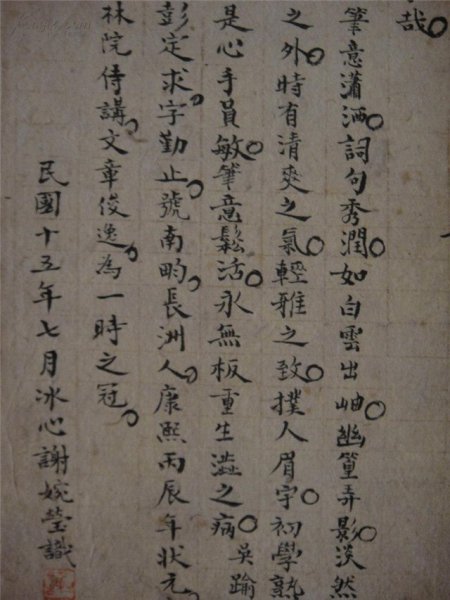 哉。
筆意瀟洒。詞句秀潤。如白雲出岫。幽篁弄影。淡然
之外。時有清爽之氣。輕雅之致。撲人眉宇。初學熟
是。心手員敏。筆意鬆活。永無板重生澁之病。吳踰
彭定求。字勤止。號南畇。長洲人。康熙丙辰年狀元。
林院侍講。文章俊逸。為一時之冠。
民國十五年七月冰心謝婉瑩識